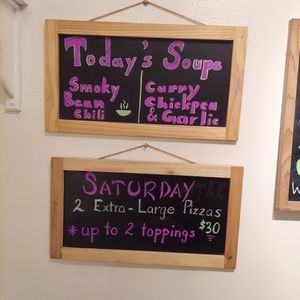 Today's Soups
Smoky
Bean
Chili
Curry
Chickpea
& Garlic
SATURDAY
2 Extra-Large Pizzas
* up to 2 toppings $30